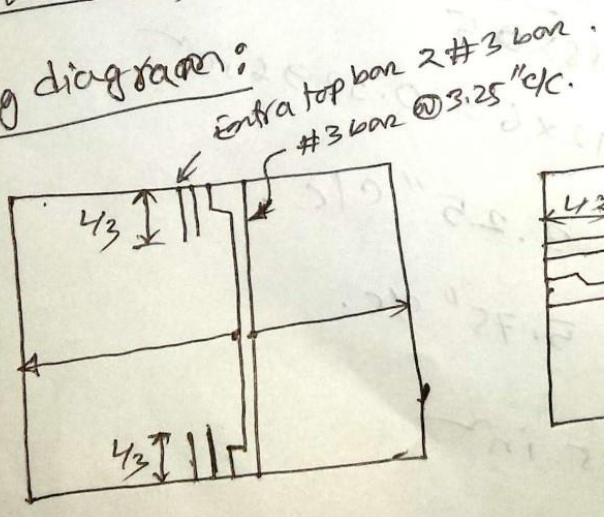 g diagram:
Extra top bar 2 #3 bar.
#3 bar @ 3.25" c/c.
L/3
L/3
L/3